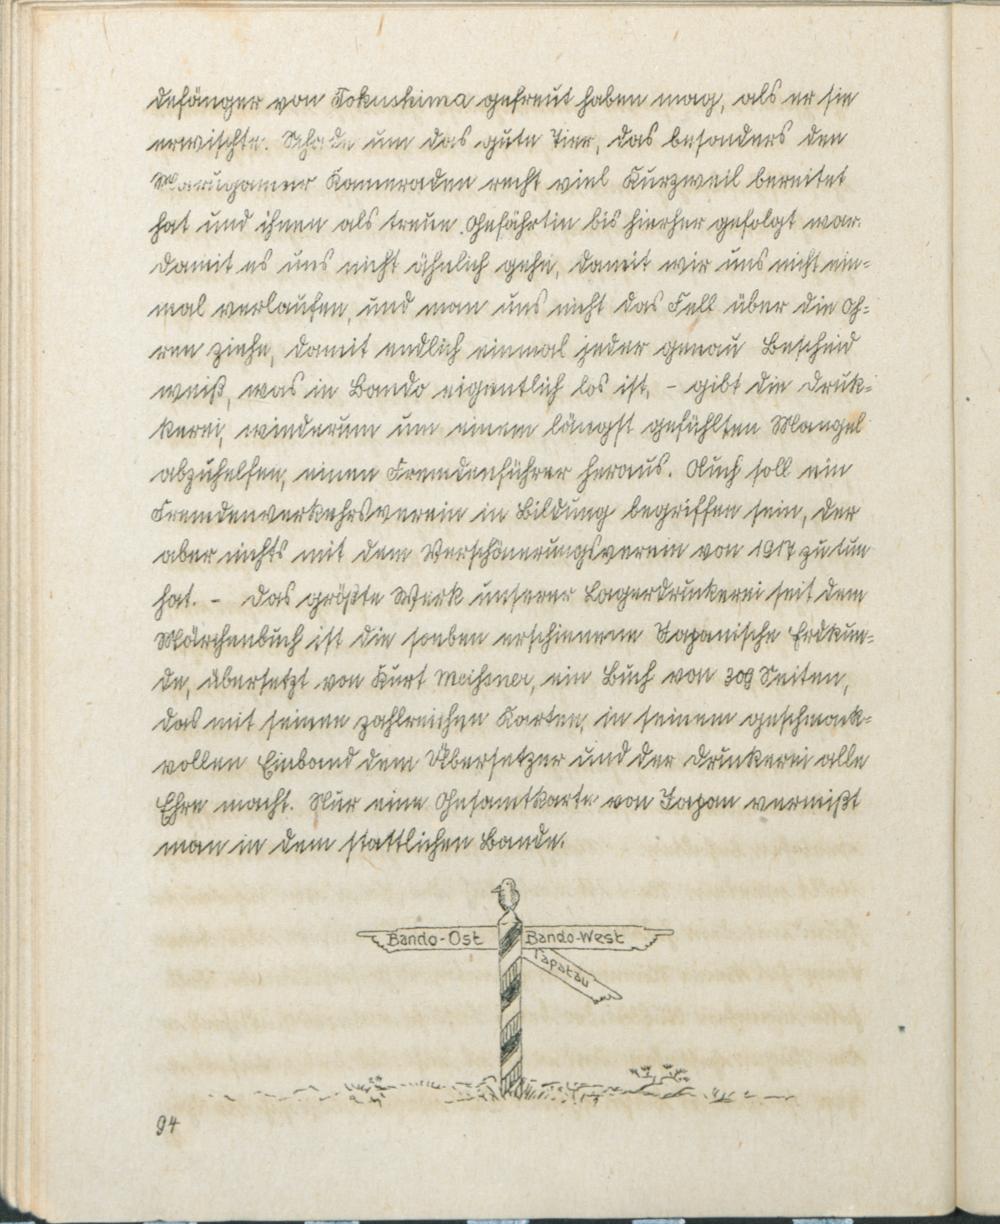 defänger von Tokushima gefreut haben mag, als er sie
erwischte. Schade um das gute Tier, das besonders den
Marugamer Kameraden recht viel Kurzweil bereitet
hat und ihnen als treue Gefährtin bis hierher gefolgt war.
Damit es uns nicht ähnlich gehe, damit wir uns nicht ein-
mal verlaufen, und man uns nicht das Fell über die Oh-
ren ziehe, damit endlich einmal jeder genau Bescheid
weiß, was in Bando eigentlich los ist, - gibt die Druk-
kerei, wiederum um einem längst gefühlten Mangel
abzuhelfen, einen Fremdenführer heraus. Auch soll ein
Fremdenverkehrsverein in Bildung begriffen sein, der
aber nichts mit dem Verschönerungsverein von 1917 zu tun
hat. - Das größte Werk unserer Lagerdruckerei seit dem
Märchenbuch ist die soeben erschienene Japanische Erdkun-
de, übersetzt von Kurt Meißner, ein Buch von 309 Seiten,
das mit seinen zahlreichen Karten, in seinem geschmack-
vollen Einband dem Übersetzer und der Druckerei alle
Ehre macht. Nur eine Gesamtkarte von Japan vermißt
man in dem stattlichen Bande.
Bando-Ost Bando-West
Tapatau
94